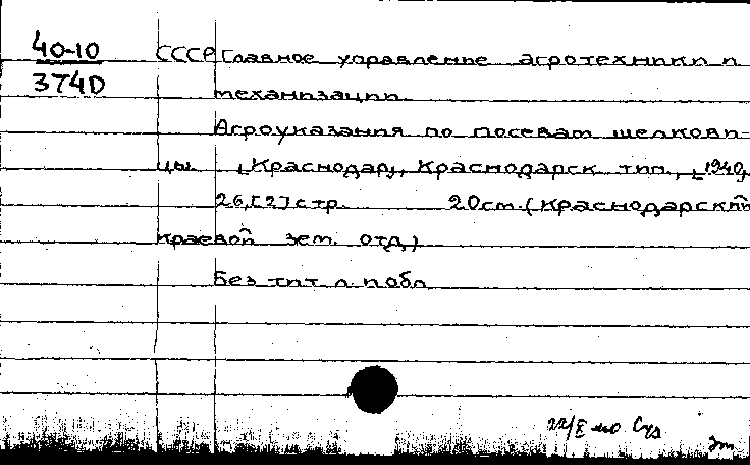 40-10
374D
СССР Главное управление агротехники и
механизации
Агроуказания по посевам шелкови-
цы. [Краснодар], Краснодарск тип., [1940,
26, [2] стр. 20 см. (Краснодарский
краевой зем. отд.)
Без тит л и обл
22/